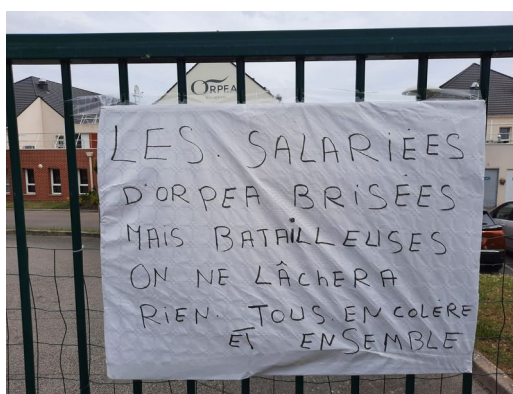 ORPEA
LES. SALARIÉES
D'ORPEA BRISÉES
MAIS BATAILLEUSES
ON NE LÂCHERA
RIEN. TOUS. EN COLÈRE
ET ENSEMBLE